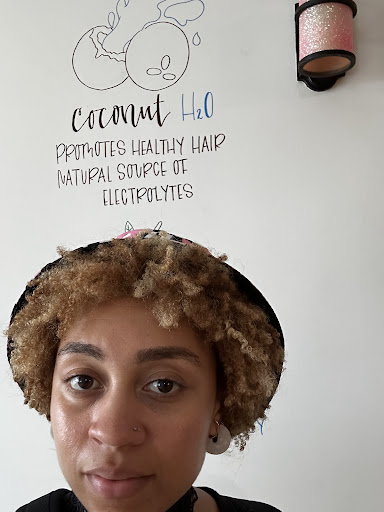 Coconut H2O
PROMOTES HEALTHY HAIR
NATURAL SOURCE OF
ELECTROLYTES